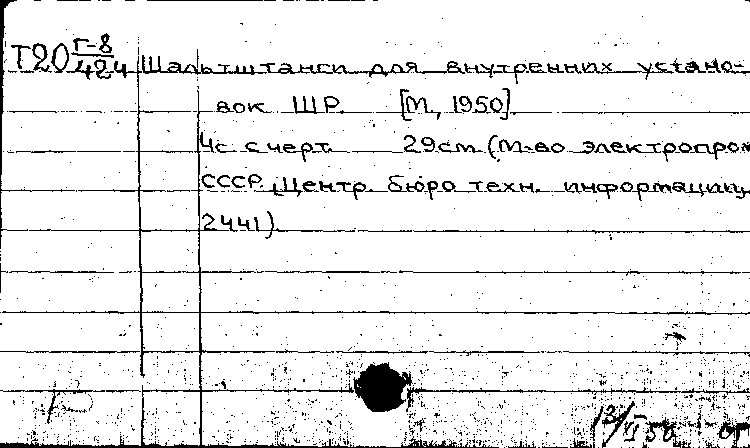 Т20 Г-8/424 Шальтштанги для внутренних устано-
вок ШР. [М, 1950].
4с с черт. 29см. (М-во электропром
СССР. Центр. бюро техн. информации,
2441).